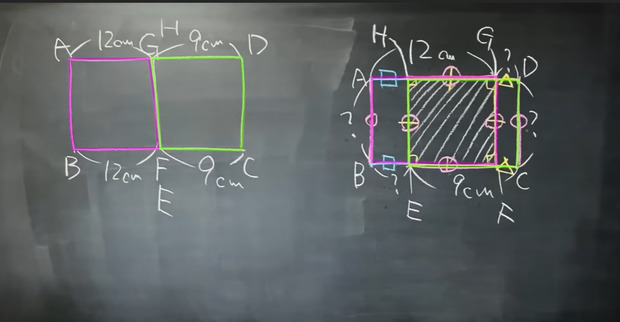 A 12cm G H 9cm D
B 12cm F 9cm C
E
H G
12cm ? D
A
? ?
B ? 9cm C
E F